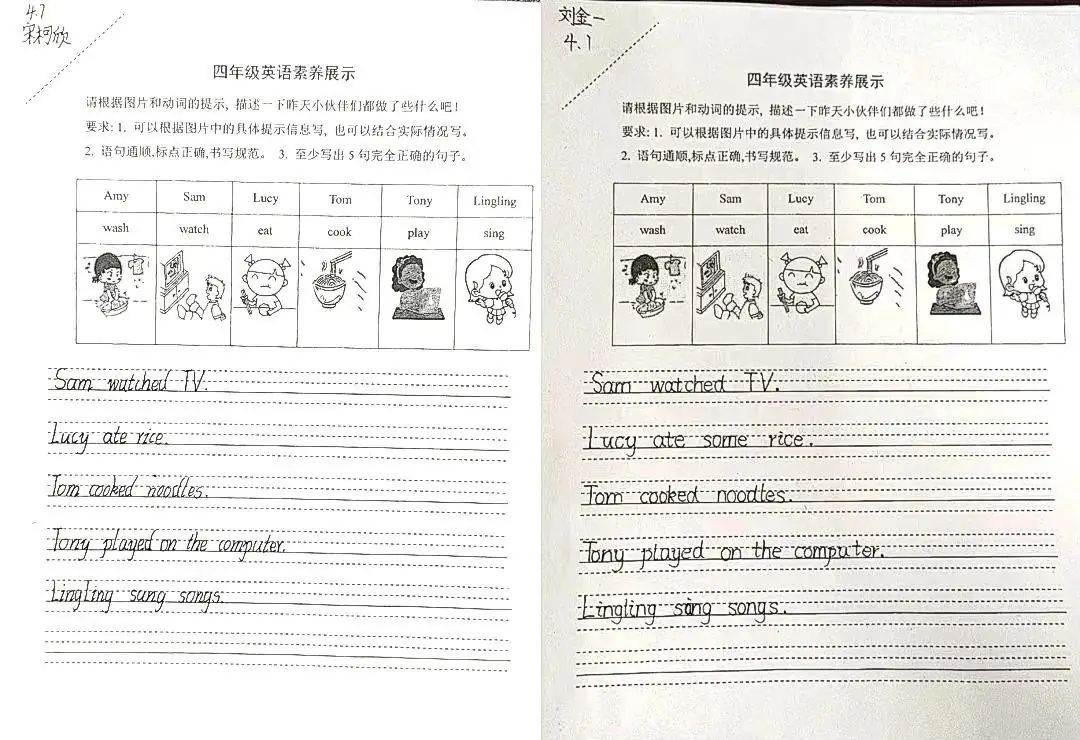 4.1
宋柯欣
四年级英语素养展示
请根据图片和动词的提示, 描述一下昨天小伙伴们都做了些什么吧!
要求: 1. 可以根据图片中的具体提示信息写, 也可以结合实际情况写。
2. 语句通顺,标点正确,书写规范。 3. 至少写出 5 句完全正确的句子。
Amy Sam Lucy Tom Tony Lingling
wash watch eat cook play sing
Sam watched TV.
Lucy ate rice.
Tom cooked noodles.
Tony played on the computer.
Lingling sang songs.
刘金一
4.1
四年级英语素养展示
请根据图片和动词的提示, 描述一下昨天小伙伴们都做了些什么吧!
要求: 1. 可以根据图片中的具体提示信息写, 也可以结合实际情况写。
2. 语句通顺,标点正确,书写规范。 3. 至少写出 5 句完全正确的句子。
Amy Sam Lucy Tom Tony Lingling
wash watch eat cook play sing
Sam watched TV.
Lucy ate some rice.
Tom cooked noodles.
Tony played on the computer.
Lingling sang songs.